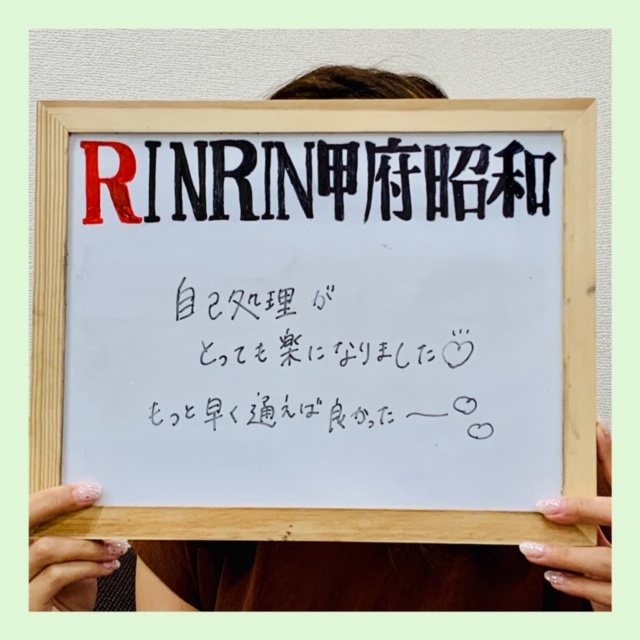 RINRIN甲府昭和
自己処理が
とっても楽になりました♡
もっと早く通えば良かった〜